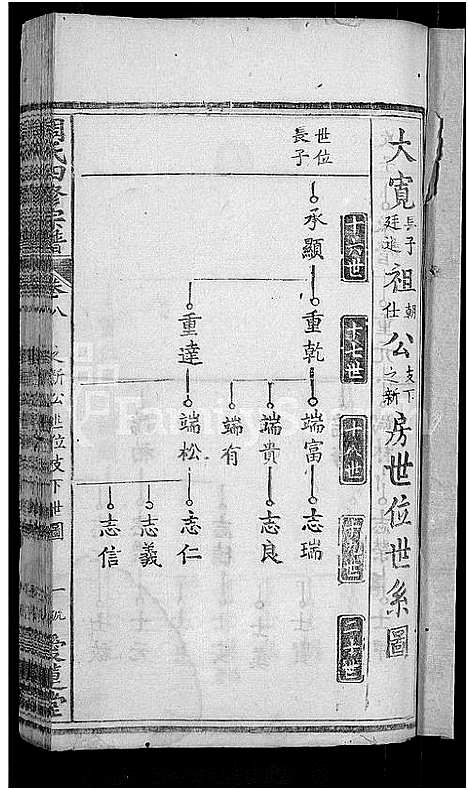 大寬長子廷進祖朝仕公支下之新房世位世系圖
十六世
十七世
十八世
十九世
二十世
世位
長子
承顯
重乾
重達
端富
端貴
端有
端松
志瑞
志良
志仁
志義
志信
周氏四修宗譜
卷八
之新公世位支下世圖
愛蓮堂